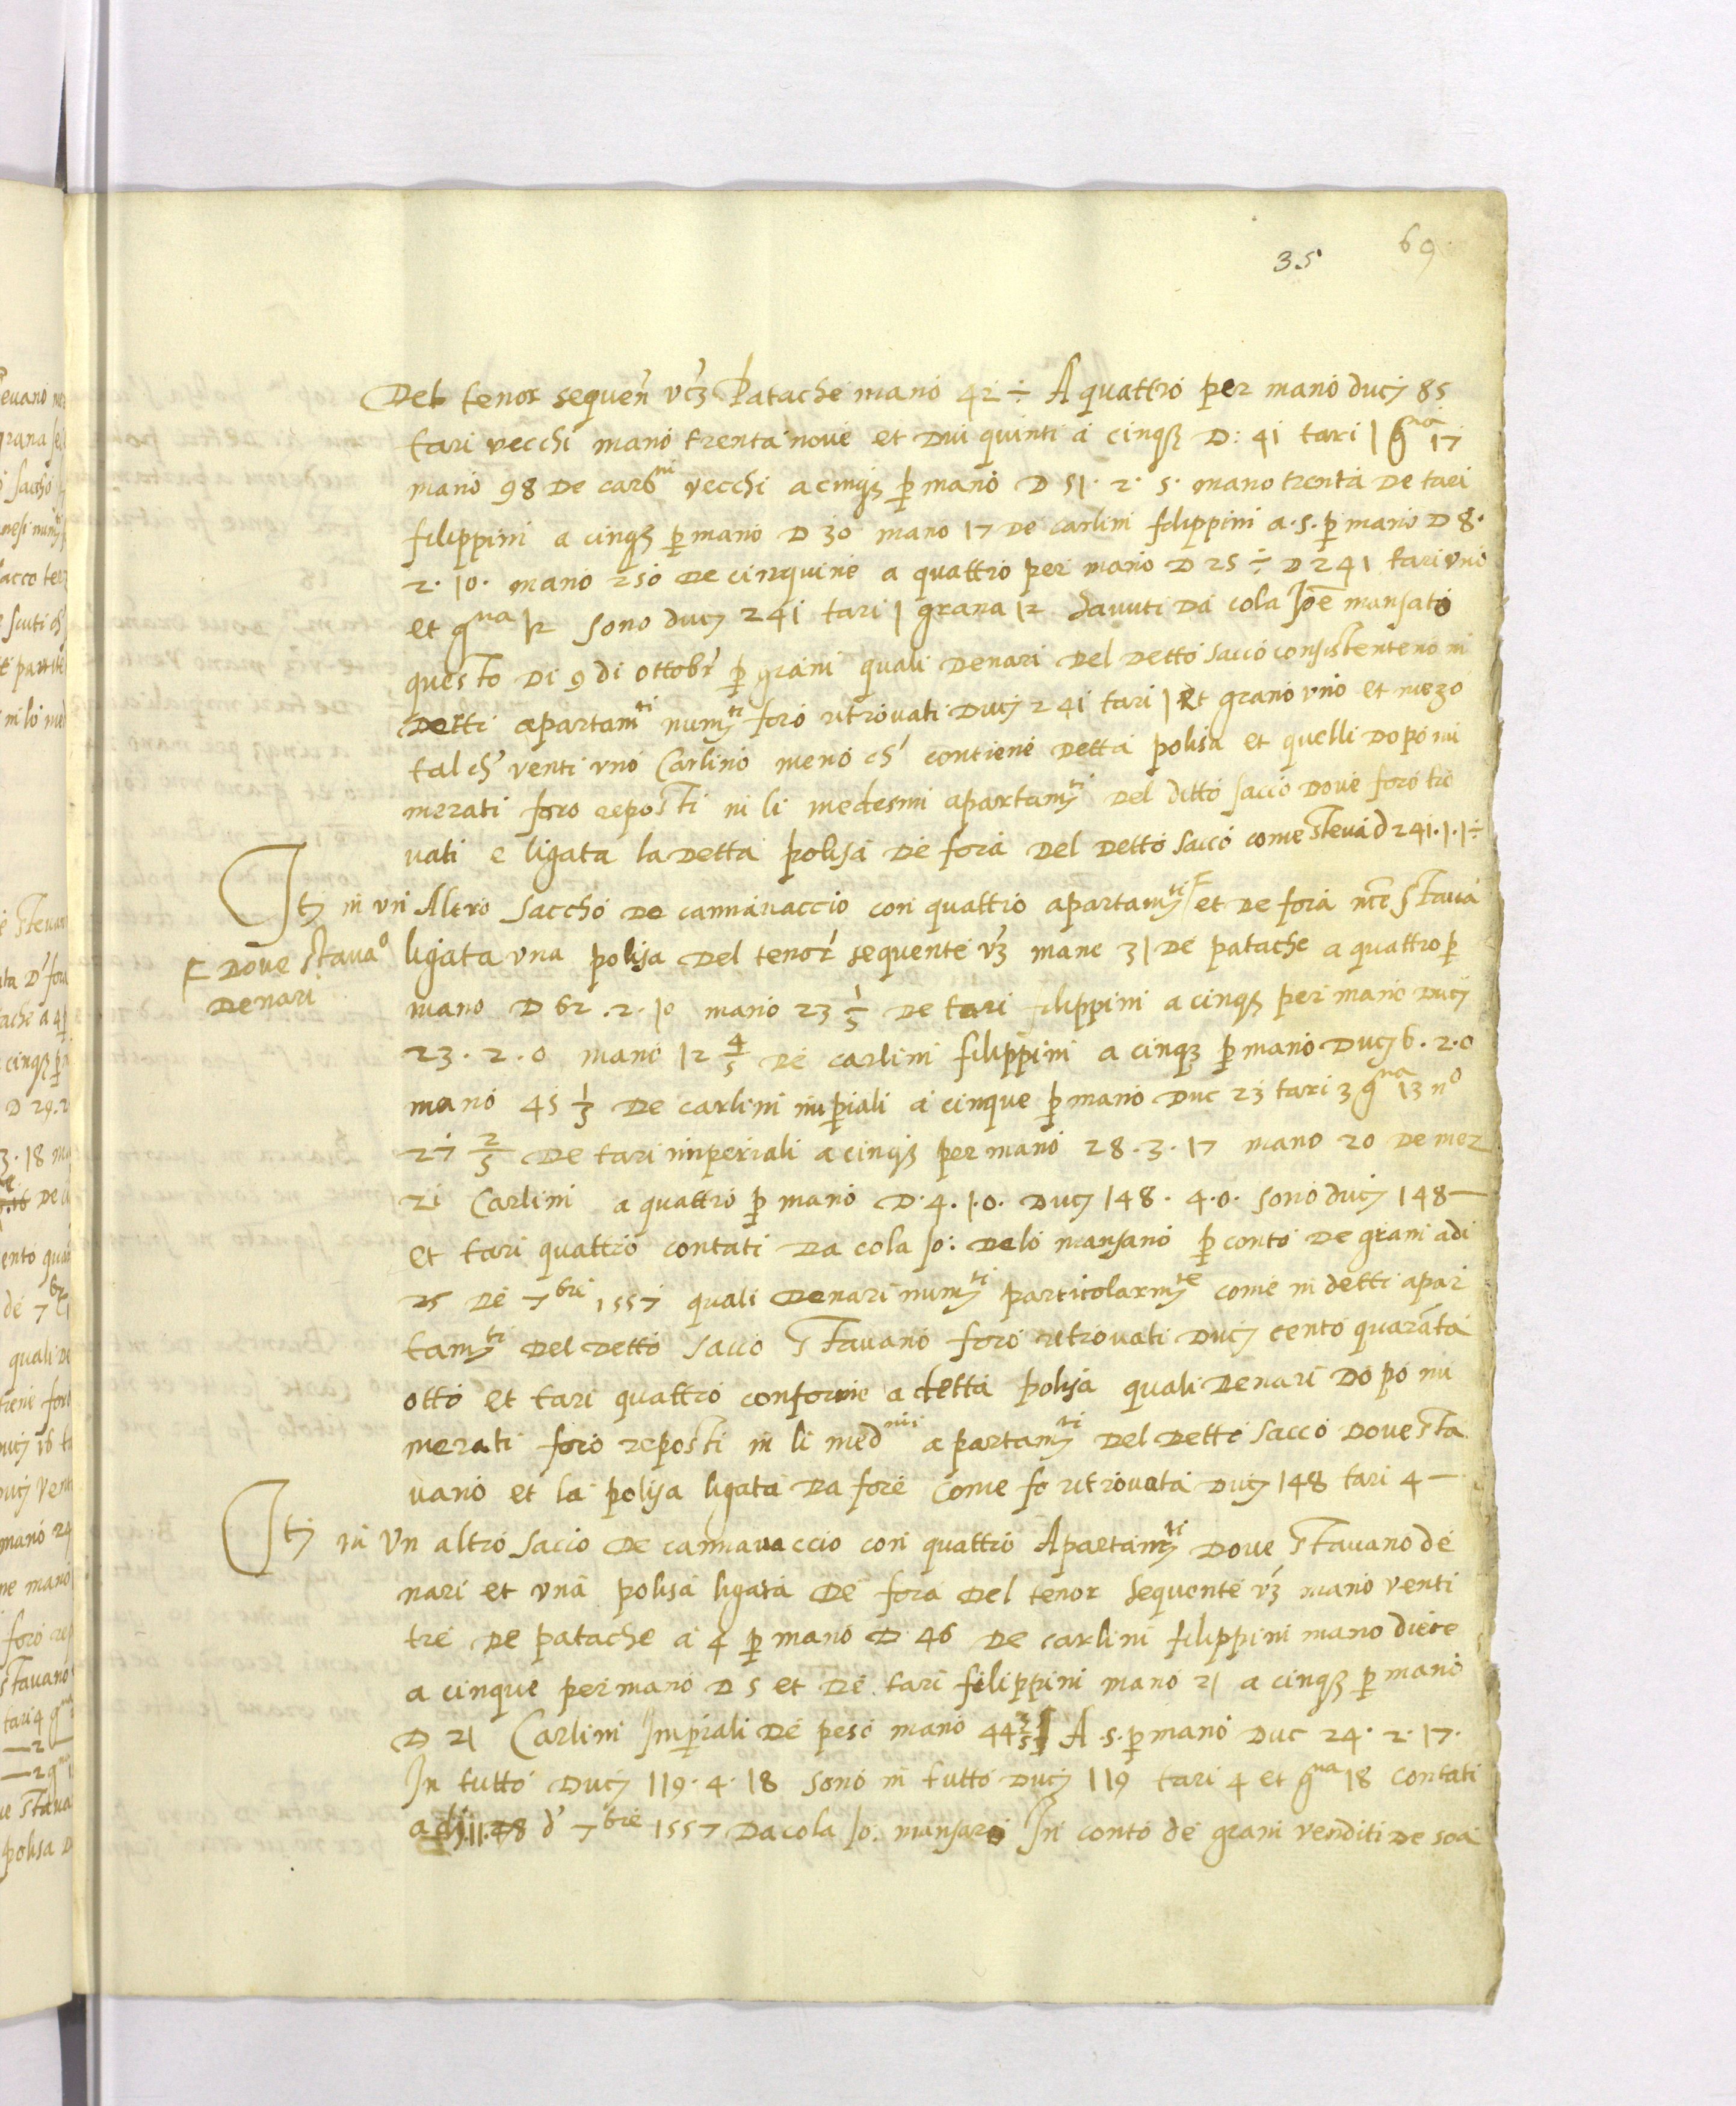 35 69
Del tenor sequen̄ vz̄ Patache mano 42 ÷ A quattro per mano ducj 85
tari vecchi mano trenta nove et dui quinti a cinqȝ D: 41 tari 1 gna 17
mano 98 de carlni vecchi a cinqȝ p mano D 51. 2. 5. mano trenta de tari
filippini a cinqȝ p mano D 30 mano 17 de carlini filippini a .5. p mano D 8.
2. 10. mano 250 de cinquine a quattro per mano D 25 ÷ D 241 tari uno
et gna 12 sono ducj 241 tari 1 grana 12 havuti da cola Joē mansato
questo di 9 di ottobr p grani quali denari del detto sacco consistenteno in
detti apartamti numti foro ritrovati ducj 241 tari 1 et grano uno et mezo
tal ch' venti uno Carlino meno ch' contiene detta polisa et quelli dopo nu
merati foro reposti in li medesmi apartamti del ditto sacco dove foro tro
vati e ligata la detta polisa de fora del detto sacco come steva d 241. 1. 1 ÷
Itȝ in un Altro sacchó de cannavaccio con quattro apartamti F et de fora mte stava
F dove stavao
denari
ligata una polisa del tenor sequente vz̄ mane 31 de patache a quattro p
mano D 62 .2. 10 mano 23 1/5 de tari filippini a cinqȝ per mano ducj
23. 2. 0 mano 12 4/5 de carlini filippini a cinqȝ p mano ducj 6. 2. 0
mano 45 1/3 de carlini imperiali a cinque p mano duc 23 tari 3 gna 13 no
27 2/5 de tari imperiali a cinqȝ per mano 28. 3. 17 mano 20 de mez
zi Carlini a quattro p mano D. 4. 1. 0. ducj 148. 4. 0. sono ducj 148 —
et tari quattro contati da cola Jo: delo mansano p conto de grani adi
25 de 7bre 1557 quali denari numti particolarmte come in detti apar
tamti del detto sacco stavano foro ritrovati ducj cento quaranta
otto et tari quattro conforme a detta polisa quali denari dopo nu
merati foro reposti in li medmi apartamti del detto sacco dove sta
vano et la polisa ligata da fore come fo ritrovata ducj 148 tari 4 —
Itȝ in Un altro sacco de cannavaccio con quattro Apartamti dove stavano de
nari et una polisa ligata de fora del tenor sequente vz̄ mano venti
tre de patache a 4 p mano D 46 de carlini filippini mano diece
a cinque per mano D 5 et de tari filippini mano 21 a cinqȝ p mano
D 21 Carlini Imperiali de peso mano 44 3/5 A .5. p mano duc 24. 2. 17.
In tutto ducj 119. 4. 18 sono in tutto ducj 119 tari 4 et gna 18 contati
d' 7bre 1557 da cola Jo. mansaro In conto de grani venditi de soa